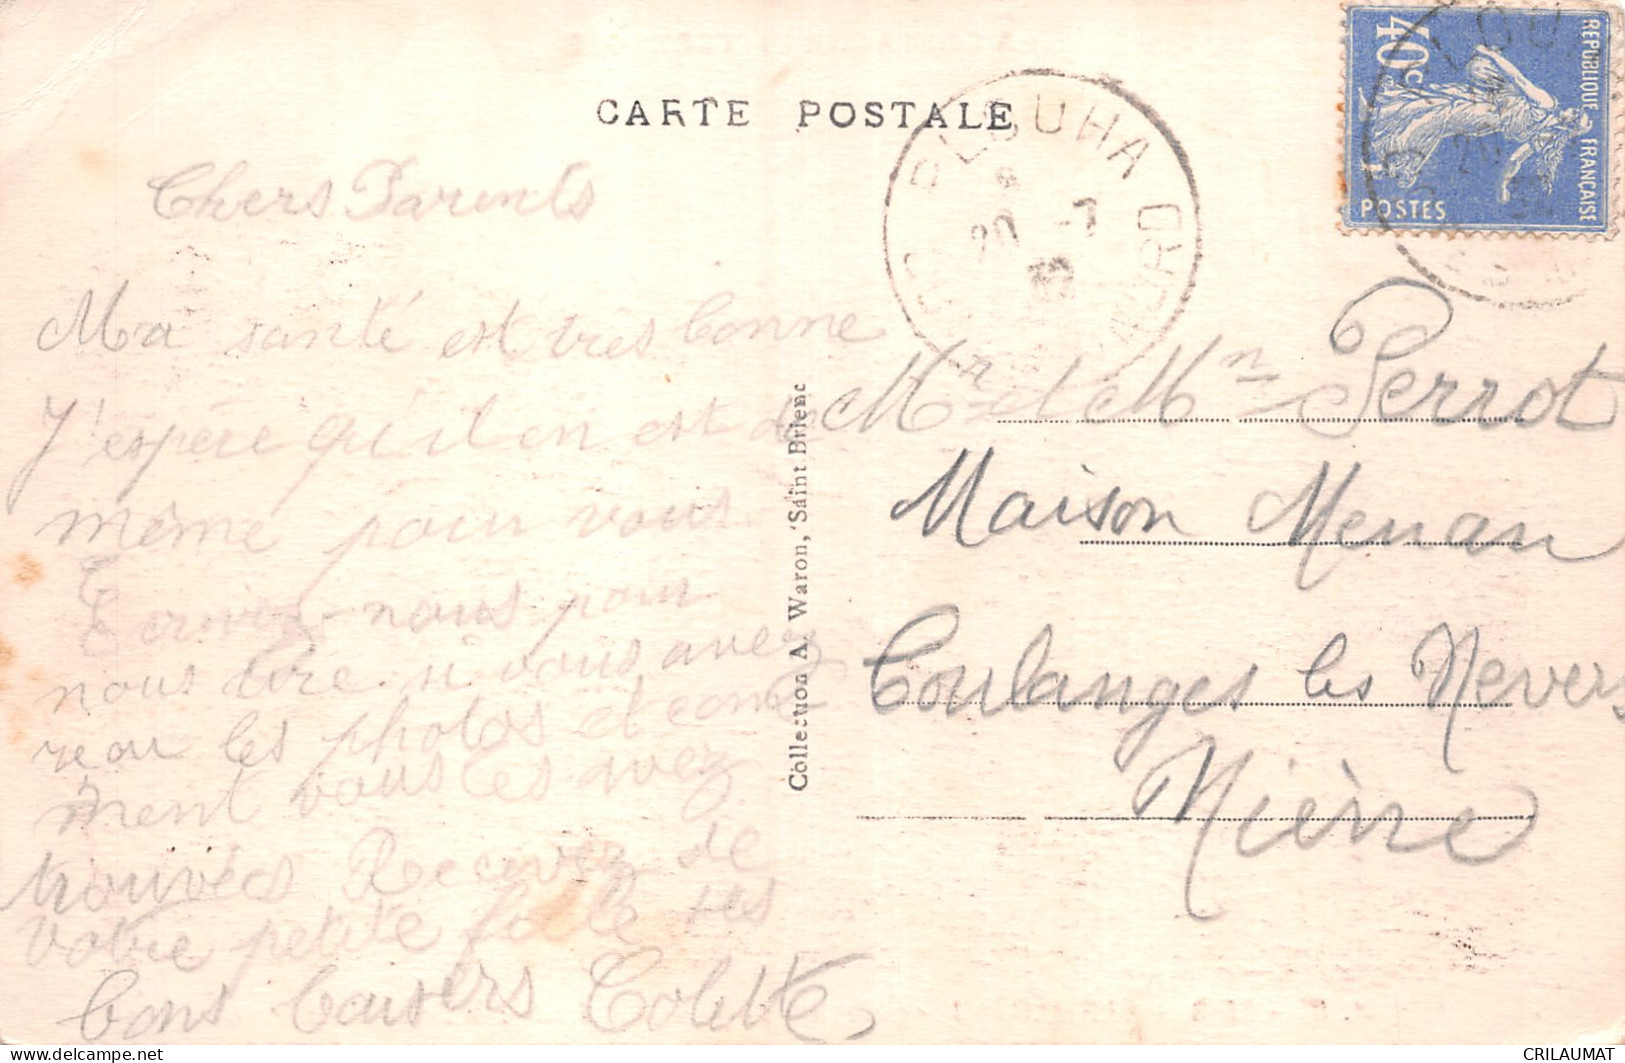 CARTE POSTALE
Chers Parents
Ma santé est très bonne
J'espère qu'il en est de
même pour vous.
Ecrivez-nous pour
nous dire si vous avez
reçu les photos et com
ment vous les avez
trouvées Recevez de
votre petite fille ses
bons baisers Colette
Collection A. Waron, Saint Brieuc
PLOUHA
20 -7
32
DU NORD
REPUBLIQUE FRANÇAISE
40c
POSTES
Mr et Mme Perrot
Maison Menan
Coulanges les Nevers
Nièvre
CRILAUMAT